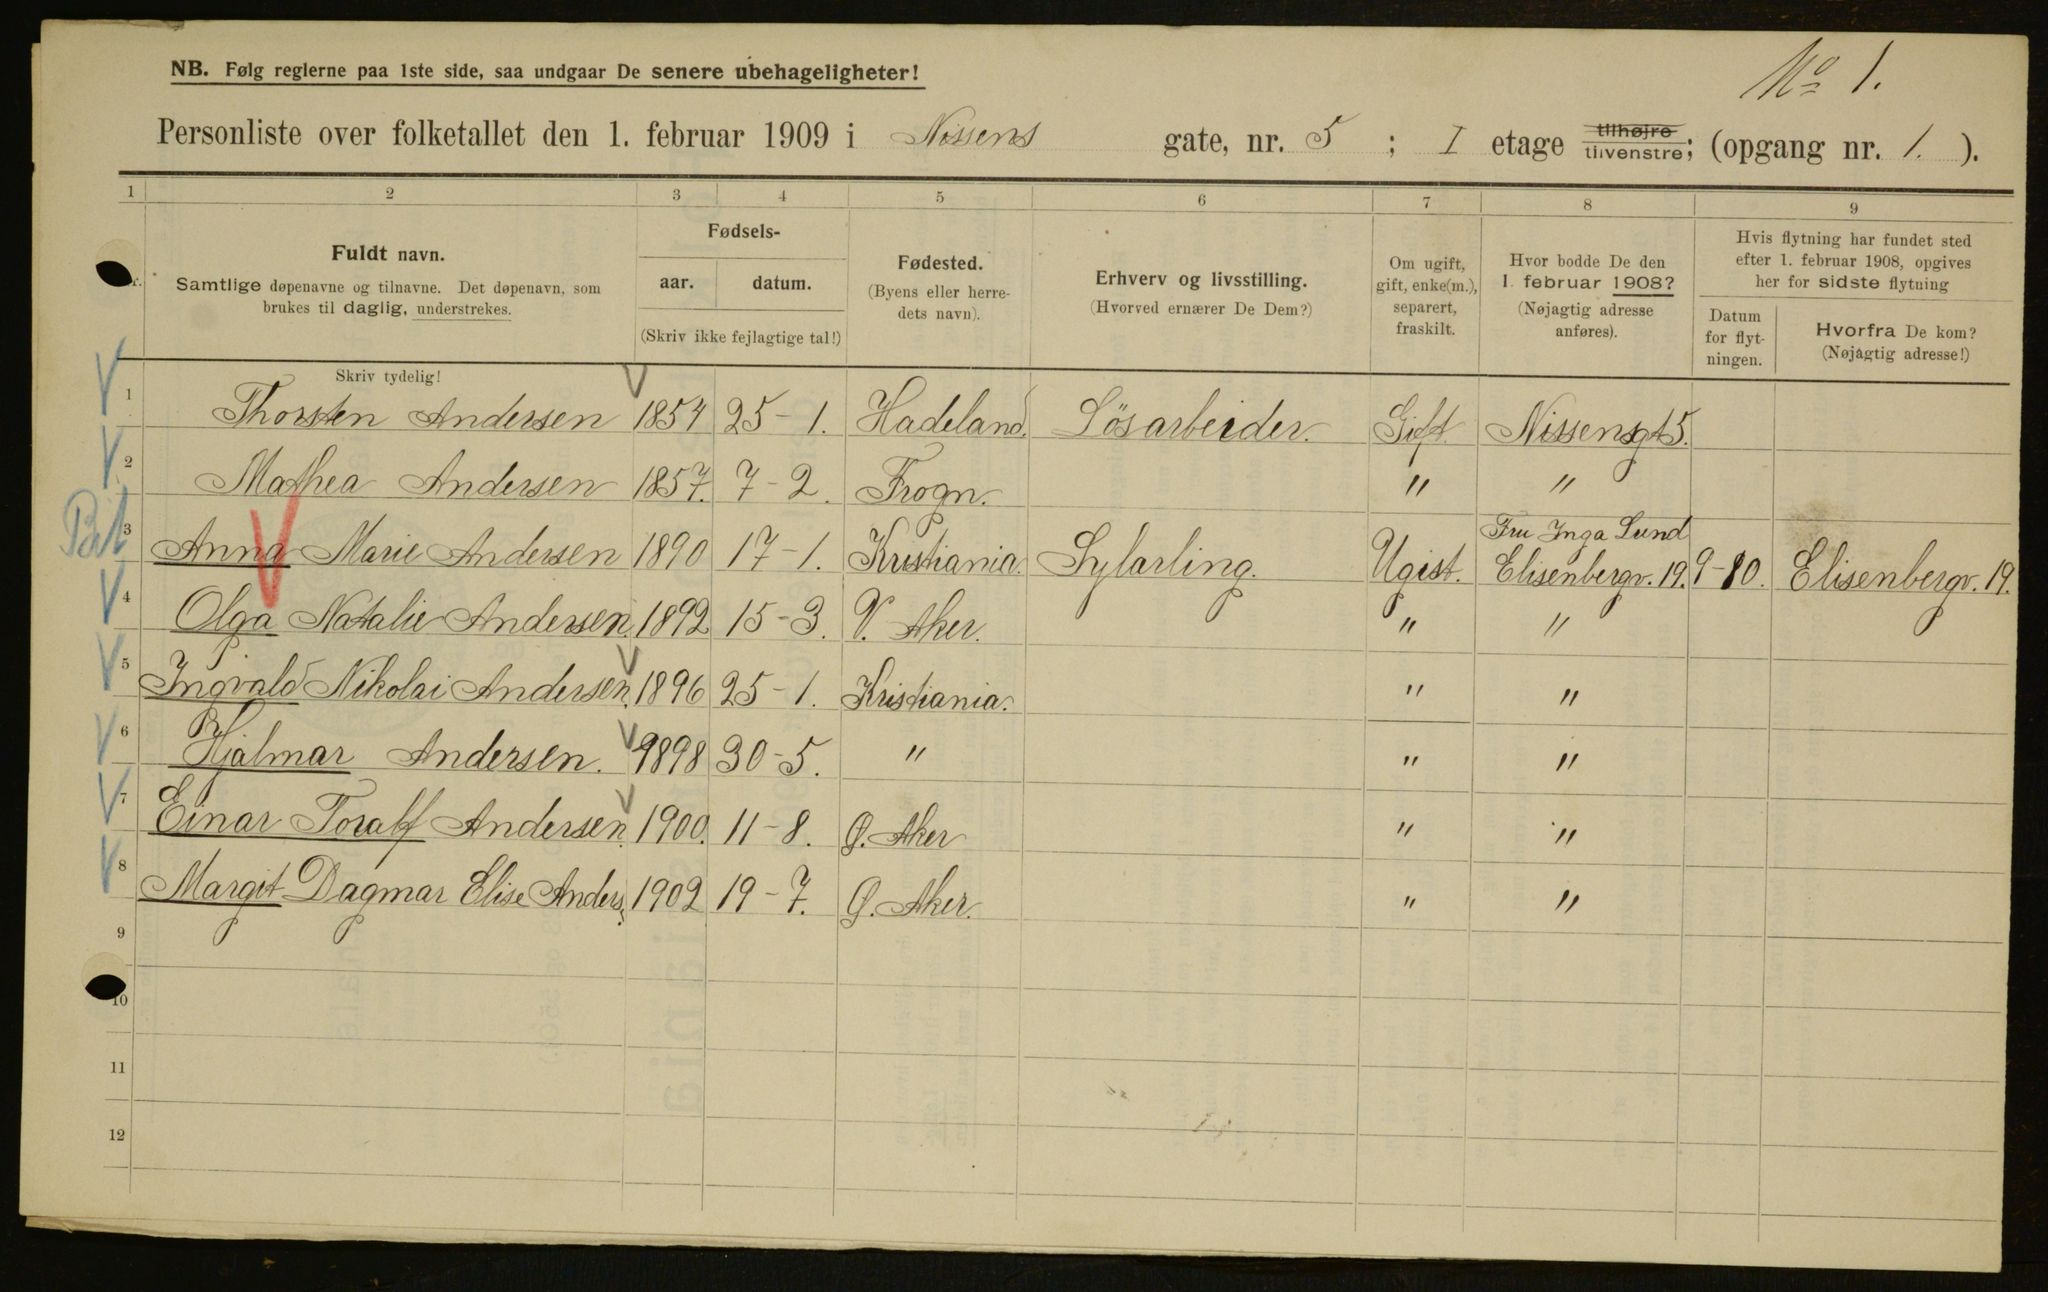 No 1.
NB. Følg reglerne paa 1ste side, saa undgaar De senere ubehageligheter!
Personliste over folketallet den 1. februar 1909 i Nissens gate, nr. 5 ; I etage tilhøjre tilvenstre; (opgang nr. 1. ).
1 2 3 4 5 6 7 8 9
Fuldt navn.
Samtlige døpenavne og tilnavne. Det døpenavn, som
brukes til daglig, understrekes.
Skriv tydelig!
Fødsels-
aar. datum.
(Skriv ikke fejlagtige tal!)
Fødested.
(Byens eller herre-
dets navn).
Erhverv og livsstilling.
(Hvorved ernærer De Dem?)
Om ugift,
gift, enke(m.),
separert,
fraskilt.
Hvor bodde De den
1. februar 1908?
(Nøjagtig adresse
anføres).
Hvis flytning har fundet sted
efter 1. februar 1908, opgives
her for sidste flytning
Datum
for flyt-
ningen.
Hvorfra De kom?
(Nøjagtig adresse!)
1 Thorsten Andersen 1854 25-1. Hadeland. Løsarbeider. Gift. Nissensgt 5.
2 Mathea Andersen 1857. 7-2. Frogn. " "
Fru Inga Lund
3 Anna Marie Andersen 1890 17-1. Kristiania. Sylærling. Ugist. Elisenbergv. 19. 9-10. Elisenbergv. 19.
4 Olga Natalie Andersen. 1892 15-3. V. Aker. " "
5 Ingvald Nikolai Andersen. 1896 25-1. Kristiania. " "
6 Hjalmar Andersen. 1898 30-5. " " "
7 Einar Toralf Andersen. 1900. 11-8. Ø. Aker " "
8 Margit Dagmar Elise Anders. 1902 19-7. Ø. Aker. " "
9
10
11
12